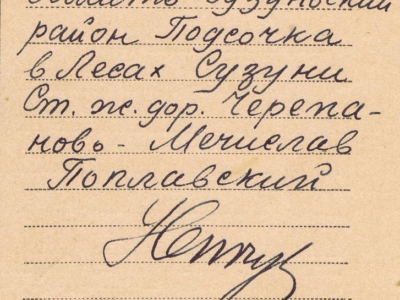 Сузунский
район Подсочка
в Лесах Сузуни
Ст. ж. дор. Черепа-
ново - Мечислав
Поплавский